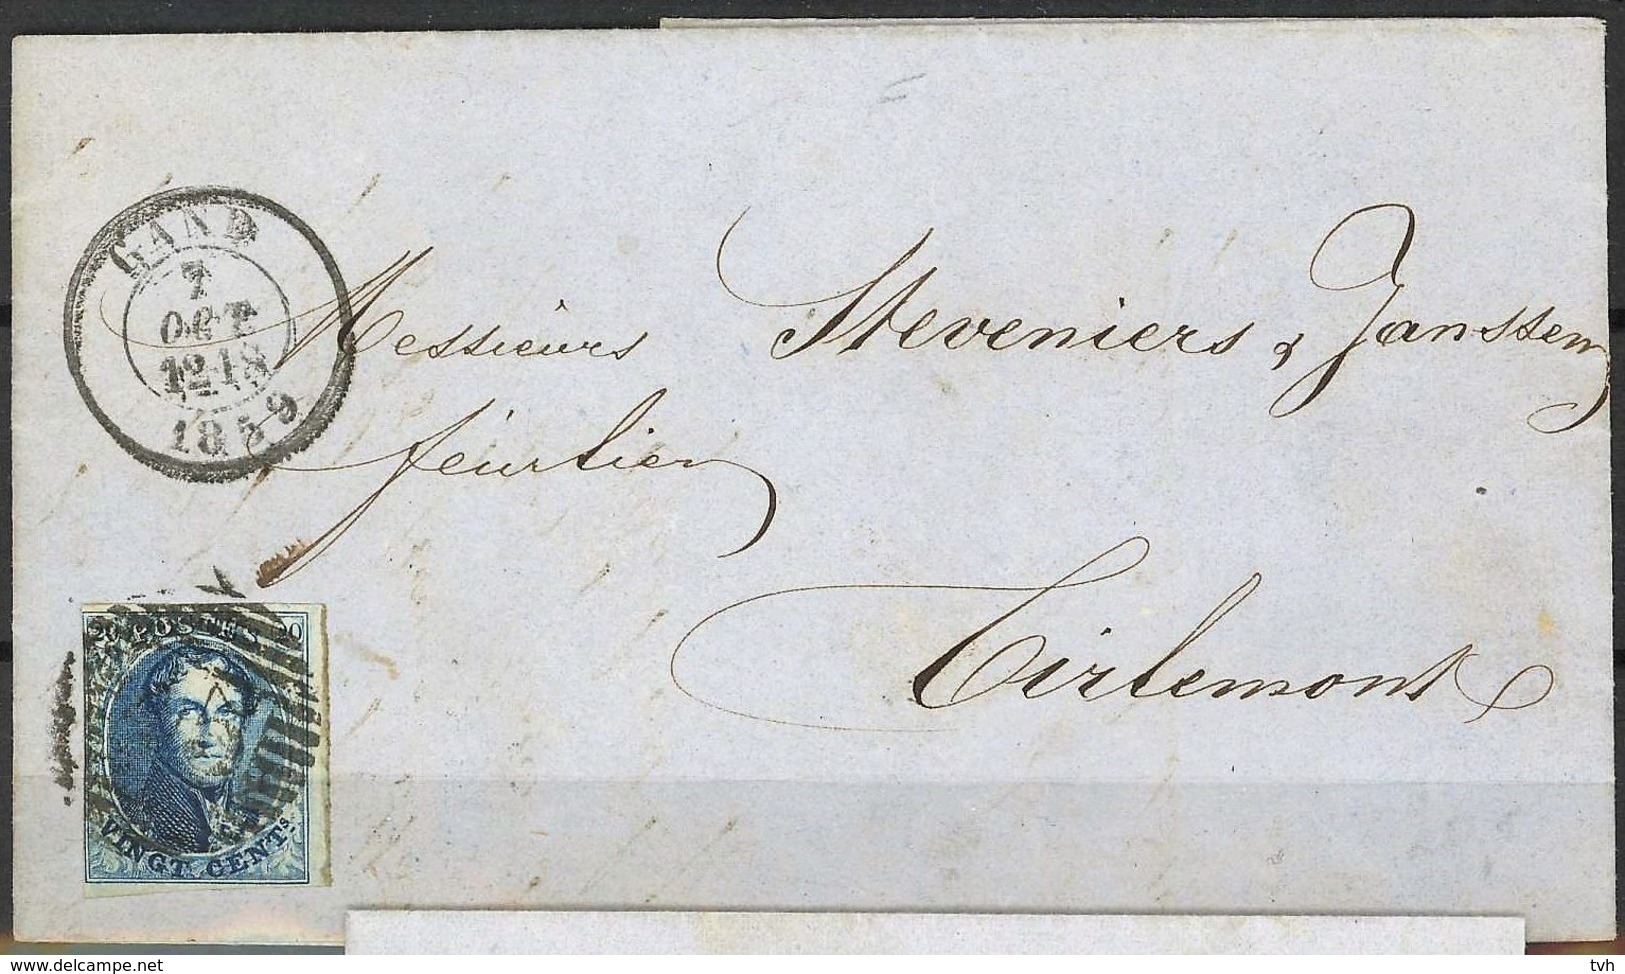 GAND
7
OCT
12-18
1859
Messieurs Steveniers & Janssens
Tirlemont
20 POSTES 20
VINGT CENTS.
© delcampe.net
tvh